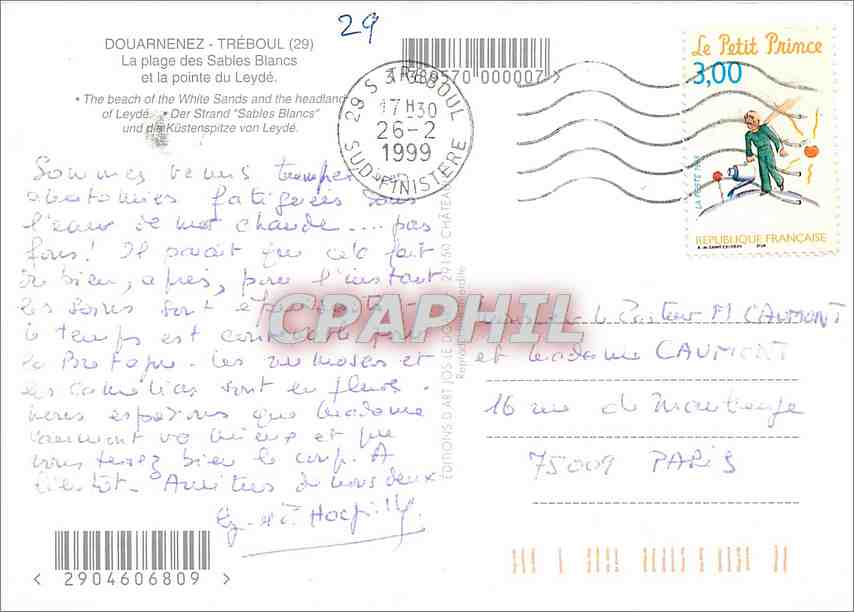 29
DOUARNENEZ - TRÉBOUL (29)
La plage des Sables Blancs
et la pointe du Leydé.
• The beach of the White Sands and the headland
of Leydé. • Der Strand "Sables Blancs"
und die Küstenspitze von Leydé.
3 389570 000007
29 S TRÉBOUL
17H30
26-2
1999
SUD FINISTÈRE
Le Petit Prince
3,00
RÉPUBLIQUE FRANÇAISE
Sommes venus tremper
anatomies fatiguées dans
l'eau de mer chaude .... pas
fous! Il paraît que cela fait
du bien, après, pour l'instant
les soins sont
le temps est
la Bretagne. Les mimosas et
les camélias sont en fleurs.
nous espérons que Madame
Caumont va mieux et que
vous tenez bien le coup. A
bientôt. Amitiés de nous deux
CPAPHIL
ÉDITIONS D'ART JOS LE
29150 CHÂTEAU
Monsieur le Pasteur M CAUMONT
et Madame CAUMONT
16 rue de Maubeuge
75009 PARIS
< 2904606809 >